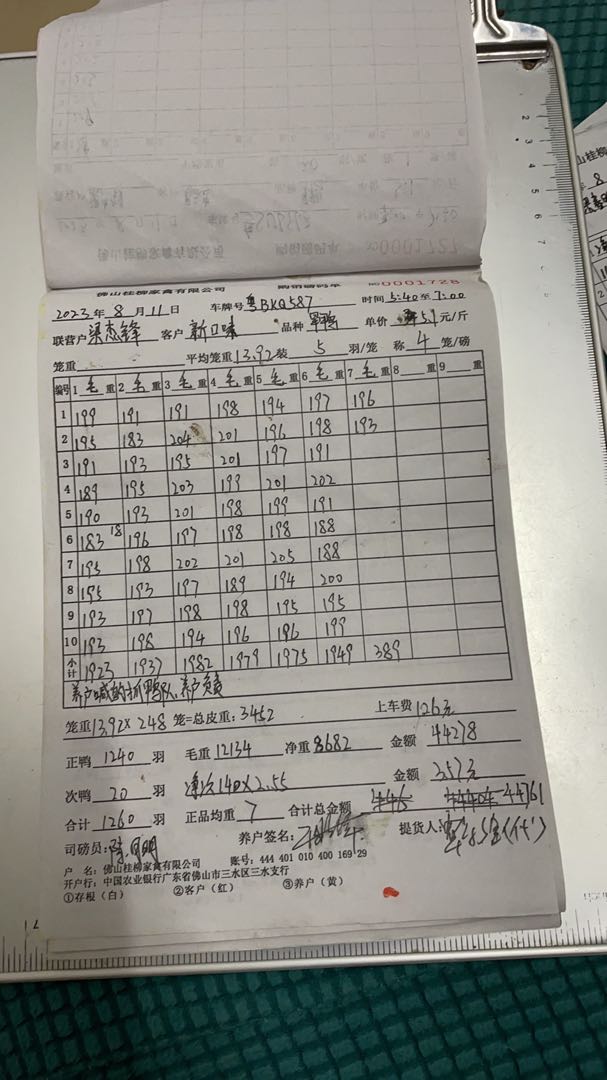 佛山桂柳家禽有限公司 购销磅码单 №0001728
2023年8月11日 车牌号 粤BKQ587 时间 5:40至7:00
联营户 渠志锋 客户 新口味 品种 单价 5.1 元/斤
笼重 平均笼重 13.92 装 5 羽/笼 称 4 笼/磅
编号 1 毛 重 2 毛 重 3 毛 重 4 毛 重 5 毛 重 6 毛 重 7 毛 重 8 重 9 重
1 199 191 191 198 194 197 196
2 195 183 204 201 196 198 193
3 191 193 195 201 197 191
4 189 195 203 199 201 202
5 190 193 201 198 199 191
6 183 18 196 197 198 198 188
7 195 198 202 201 205 188
8 195 193 197 189 194 200
9 193 197 198 198 195 195
10 193 198 194 196 196 199
小计 1923 1937 1982 1979 1975 1949 389
养户喊的抓鸭队,养户负责
笼重 13.92 × 248 笼=总皮重: 3452 上车费 126元
正鸭 1240 羽 毛重 12134 净重 8682 金额 44278
次鸭 20 羽 140×2.55 金额 357元
合计 1260 羽 正品均重 7 合计总金额 44761
司磅员: 养户签名: 提货人:
户 名:佛山桂柳家禽有限公司 账号:444 401 010 400 169 29
开户行:中国农业银行广东省佛山市三水区三水支行
①存根(白) ②客户(红) ③养户(黄)